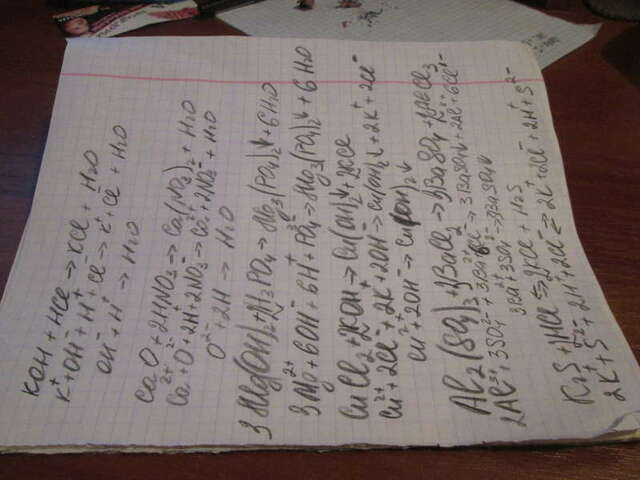 KOH + HCl → KCl + H₂O
K⁺ + OH⁻ + H⁺ + Cl⁻ → K⁺ + Cl + H₂O
OH⁻ + H⁺ → H₂O
CaO + 2HNO₃ → Ca(NO₃)₂ + H₂O
Ca²⁺ + O²⁻ + 2H⁺ + 2NO₃⁻ → Ca²⁺ + 2NO₃⁻ + H₂O
O²⁻ + 2H → H₂O
3Mg(OH)₂ + H₃PO₄ → Mg₃(PO₄)₂↓ + 6H₂O
3Mg²⁺ + 6OH⁻ + 6H⁺ + PO₄³⁻ → Mg₃(PO₄)₂↓ + 6H₂O
CuCl₂ + 2KOH → Cu(OH)₂↓ + 2KCl
Cu²⁺ + 2Cl + 2K + 2OH⁻ → Cu(OH)₂↓ + 2K⁺ + 2Cl⁻
Cu²⁺ + 2OH⁻ → Cu(OH)₂↓
Al₂(SO₄)₃ + 3BaCl₂ → 3BaSO₄ + 2AlCl₃
3Ba²⁺ + 3SO₄²⁻ → 3BaSO₄↓
K₂S + 2HCl ⇆ 2KCl + H₂S
2K⁺ + S²⁻ + 2H⁺ + 2Cl⁻ ⇆ 2K⁺ + 2Cl⁻ + 2H⁺ + S²⁻